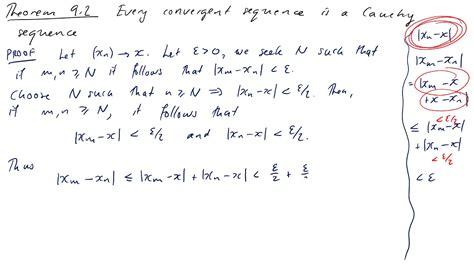 Theorem 9.2 Every convergent sequence is a Cauchy
sequence
PROOF Let (xₙ) → x. Let ε>0, we seek N such that
if m,n ≥ N it follows that |xₘ-xₙ| < ε.
Choose N such that n ≥ N ⇒ |xₙ-x| < ε/2. Then,
if m,n ≥ N, it follows that
|xₘ-x| < ε/2 and |xₙ-x| < ε/2.
Thus
|xₘ-xₙ| ≤ |xₘ-x| + |xₙ-x| < ε/2 + ε/
|xₙ-x|
|xₘ-xₙ|
= |xₘ-x
+x-xₙ|
<ε/2
≤ |xₘ-x|
+|xₙ-x|
<ε/2
< ε